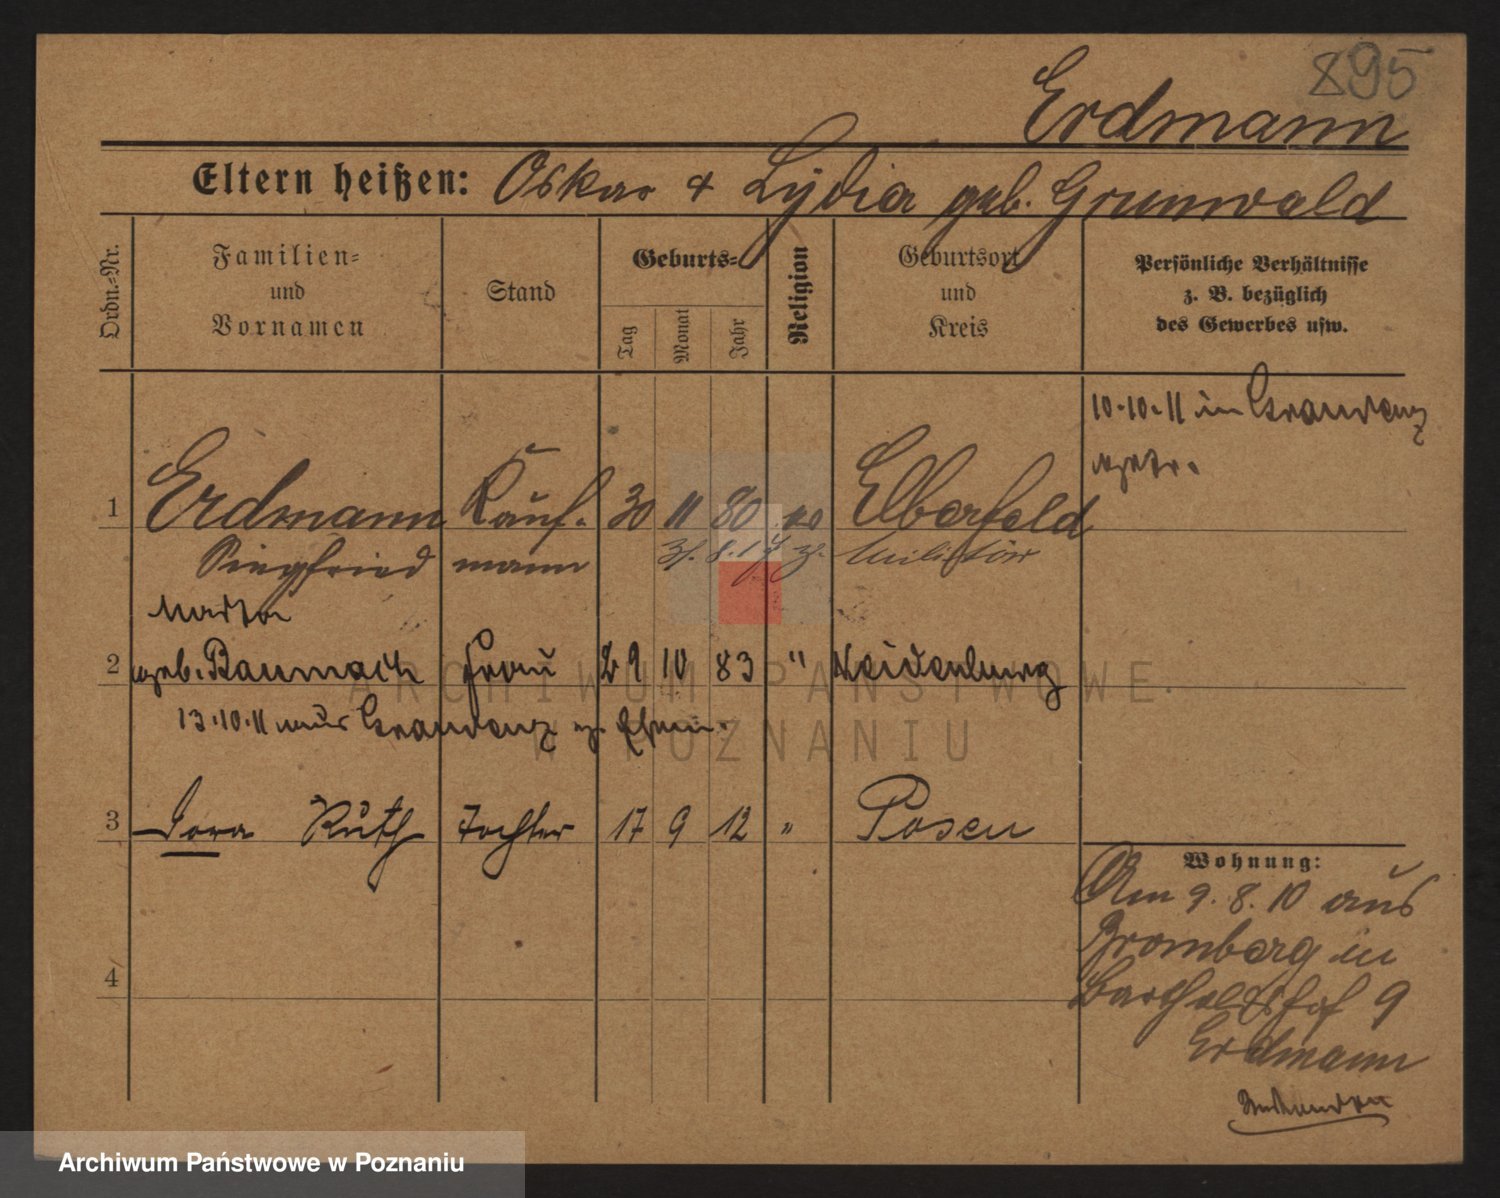 895
Erdmann
Eltern heißen: Oskar & Lydia geb. Grunwald
Ordn.-Nr.
Familien-
und
Vornamen
Stand
Geburts-
Tag
Monat
Jahr
Religion
Geburtsort
und
Kreis
Persönliche Verhältnisse
z. B. bezüglich
des Gewerbes usw.
10.10.11 in Graudenz
getr.
1 Erdmann Kauf- 30 11 80 Elberfeld
Siegfried mann 31.8.17 z. Militär
Martha
2 geb. Baumach Frau 29 10 83 " Neidenburg
13.10.11 aus Graudenz z. Ehem.
3 Dora Ruth Tochter 17 9 12 " Posen
Wohnung:
Am 9.8.10 aus
Bromberg in
Bartholdshof 9
4
Erdmann
ARCHIWUM PAŃSTWOWE
W POZNANIU
Archiwum Państwowe w Poznaniu